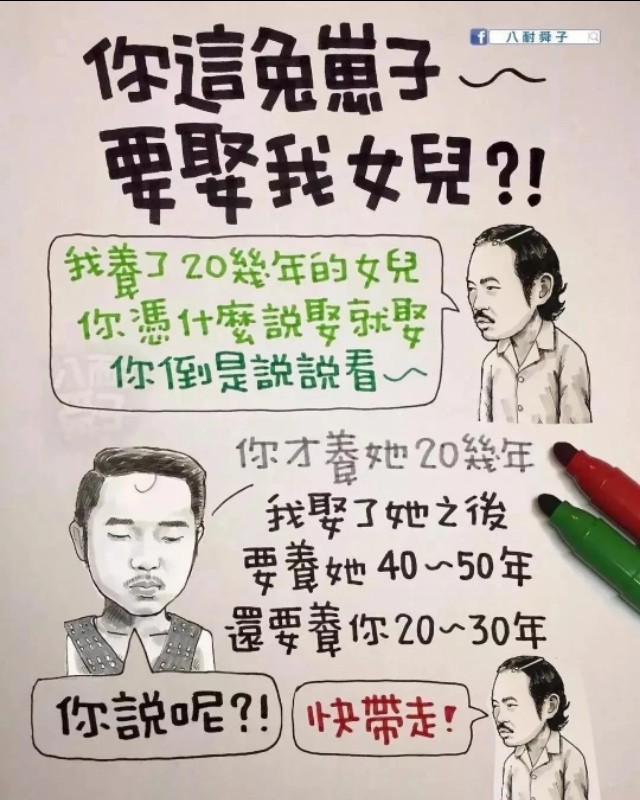 八耐舜子
你這兔崽子～
要娶我女兒?!
我養了20幾年的女兒
你憑什麼說娶就娶
你倒是說說看～
你才養她20幾年
我娶了她之後
要養她40～50年
還要養你20～30年
你說呢?!
快帶走!